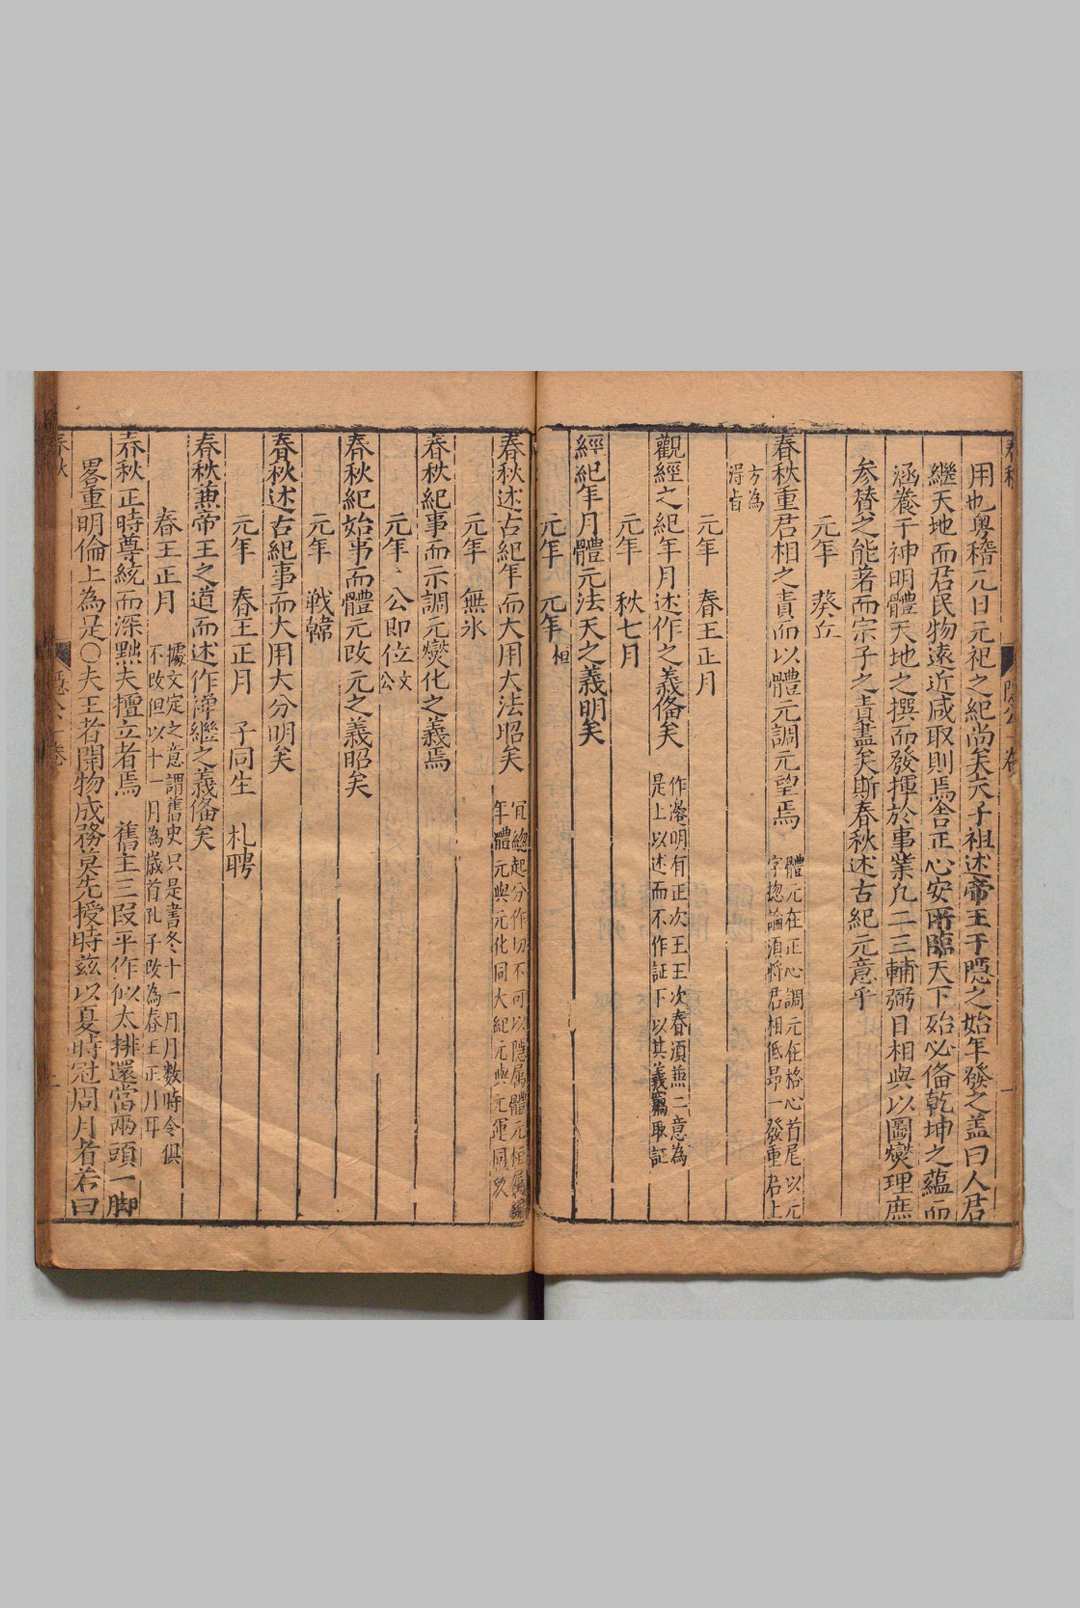 用也粤稽元日元祀之紀尚矣天子祖述帝王于隱之始年發之盖曰人君
繼天地而君民物遠近咸取則焉舍正心安所臨天下殆必俻乾坤之蘊而
涵養于神明體天地之撰而發揮於事業凡二三輔弼日相與以圖爕理庶
参賛之能著而宗子之責盡矣斯春秋述古紀元意乎
元年 葵丘
春秋重君相之責而以體元調元望焉
體元在正心調元在格心首尾以元
字揔論湏將君相低昂一發重君上
方為
淂旨
元年 春王正月
觀經之紀年月述作之義俻矣
作
明有正次王王次春湏兼二意為
是上以述而不作証下以其義竊取証
元年 秋七月
經紀年月體元法天之義明矣
元年 元年 桓
春秋述古紀年而大用大法昭矣
冝緫起分作切不可以隱属體元桓属
年體元與元化同大紀元與元運同久
元年 無氷
春秋紀事而示調元爕化之義焉
元年 公即位 文公
春秋紀始事而體元改元之義昭矣
元年 戦韓
春秋述古紀事而大用大分明矣
元年 春王正月 子同生 札聘
春秋兼帝王之道而述作淂繼之義俻矣
春王正月
據文定之意謂舊史只是書冬十一月月数時令俱
不改但以十一月為歲首孔子改為春王正月耳
春秋正時尊統而深黜夫擅立者焉 舊主三叚平作似太排還當兩頭一脚
畧重明倫上為是○夫王者開物成務莫先授時兹以夏時冠周月者若曰